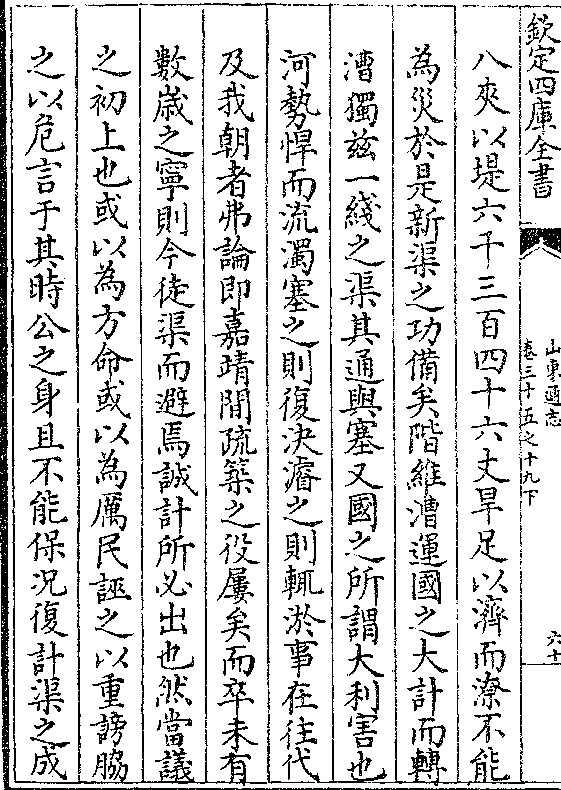 欽定四庫全書
山東通志
卷三十五之十九下
六十
八夾以堤六千三百四十六丈旱足以濟而潦不能
為災於是新渠之功備矣階維漕運國之大計而轉
漕獨兹一綫之渠其通與塞又國之所謂大利害也
河勢悍而流濁塞之則復决濬之則輒淤事在往代
及我朝者弗論即嘉靖間疏築之役屢矣而卒未有
數嵗之寧則今徙渠而避焉誠計所必出也然當議
之初上也或以為方命或以為厲民誣之以重謗脇
之以危言于其時公之身且不能保况復計渠之成